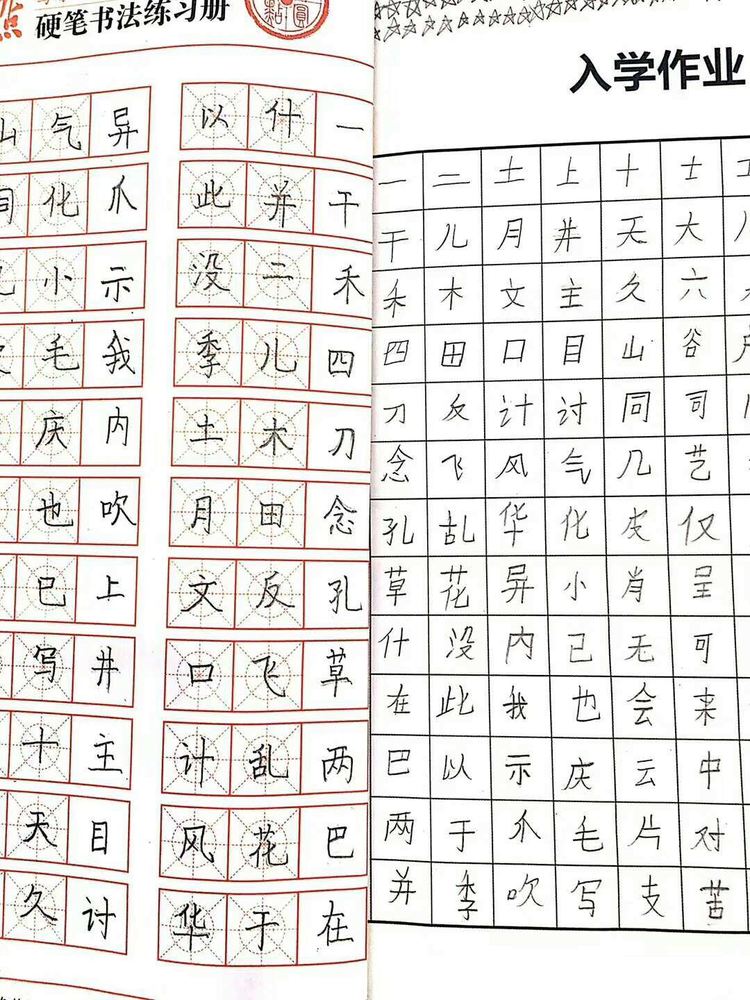 硬笔书法练习册
山 气 异
同 化 爪
小 示
毛 我
庆 内
也 吹
巳 上
写 井
十 主
天 目
久 讨
以 什 一
此 并 干
没 二 禾
季 儿 四
土 木 刀
月 田 念
文 反 孔
口 飞 草
计 乱 两
风 花 巴
华 于 在
入学作业
一 二 土 上 十 士
干 儿 月 井 天 大
禾 木 文 主 久 六
四 田 口 目 山 谷
刀 反 计 讨 同 司
念 飞 风 气 几 艺
孔 乱 华 化 皮 仅
草 花 异 小 肖 呈
什 没 内 己 无 可
在 此 我 也 会 来
巴 以 示 庆 云 中
两 于 爪 毛 片 对
并 季 吹 写 支 苦